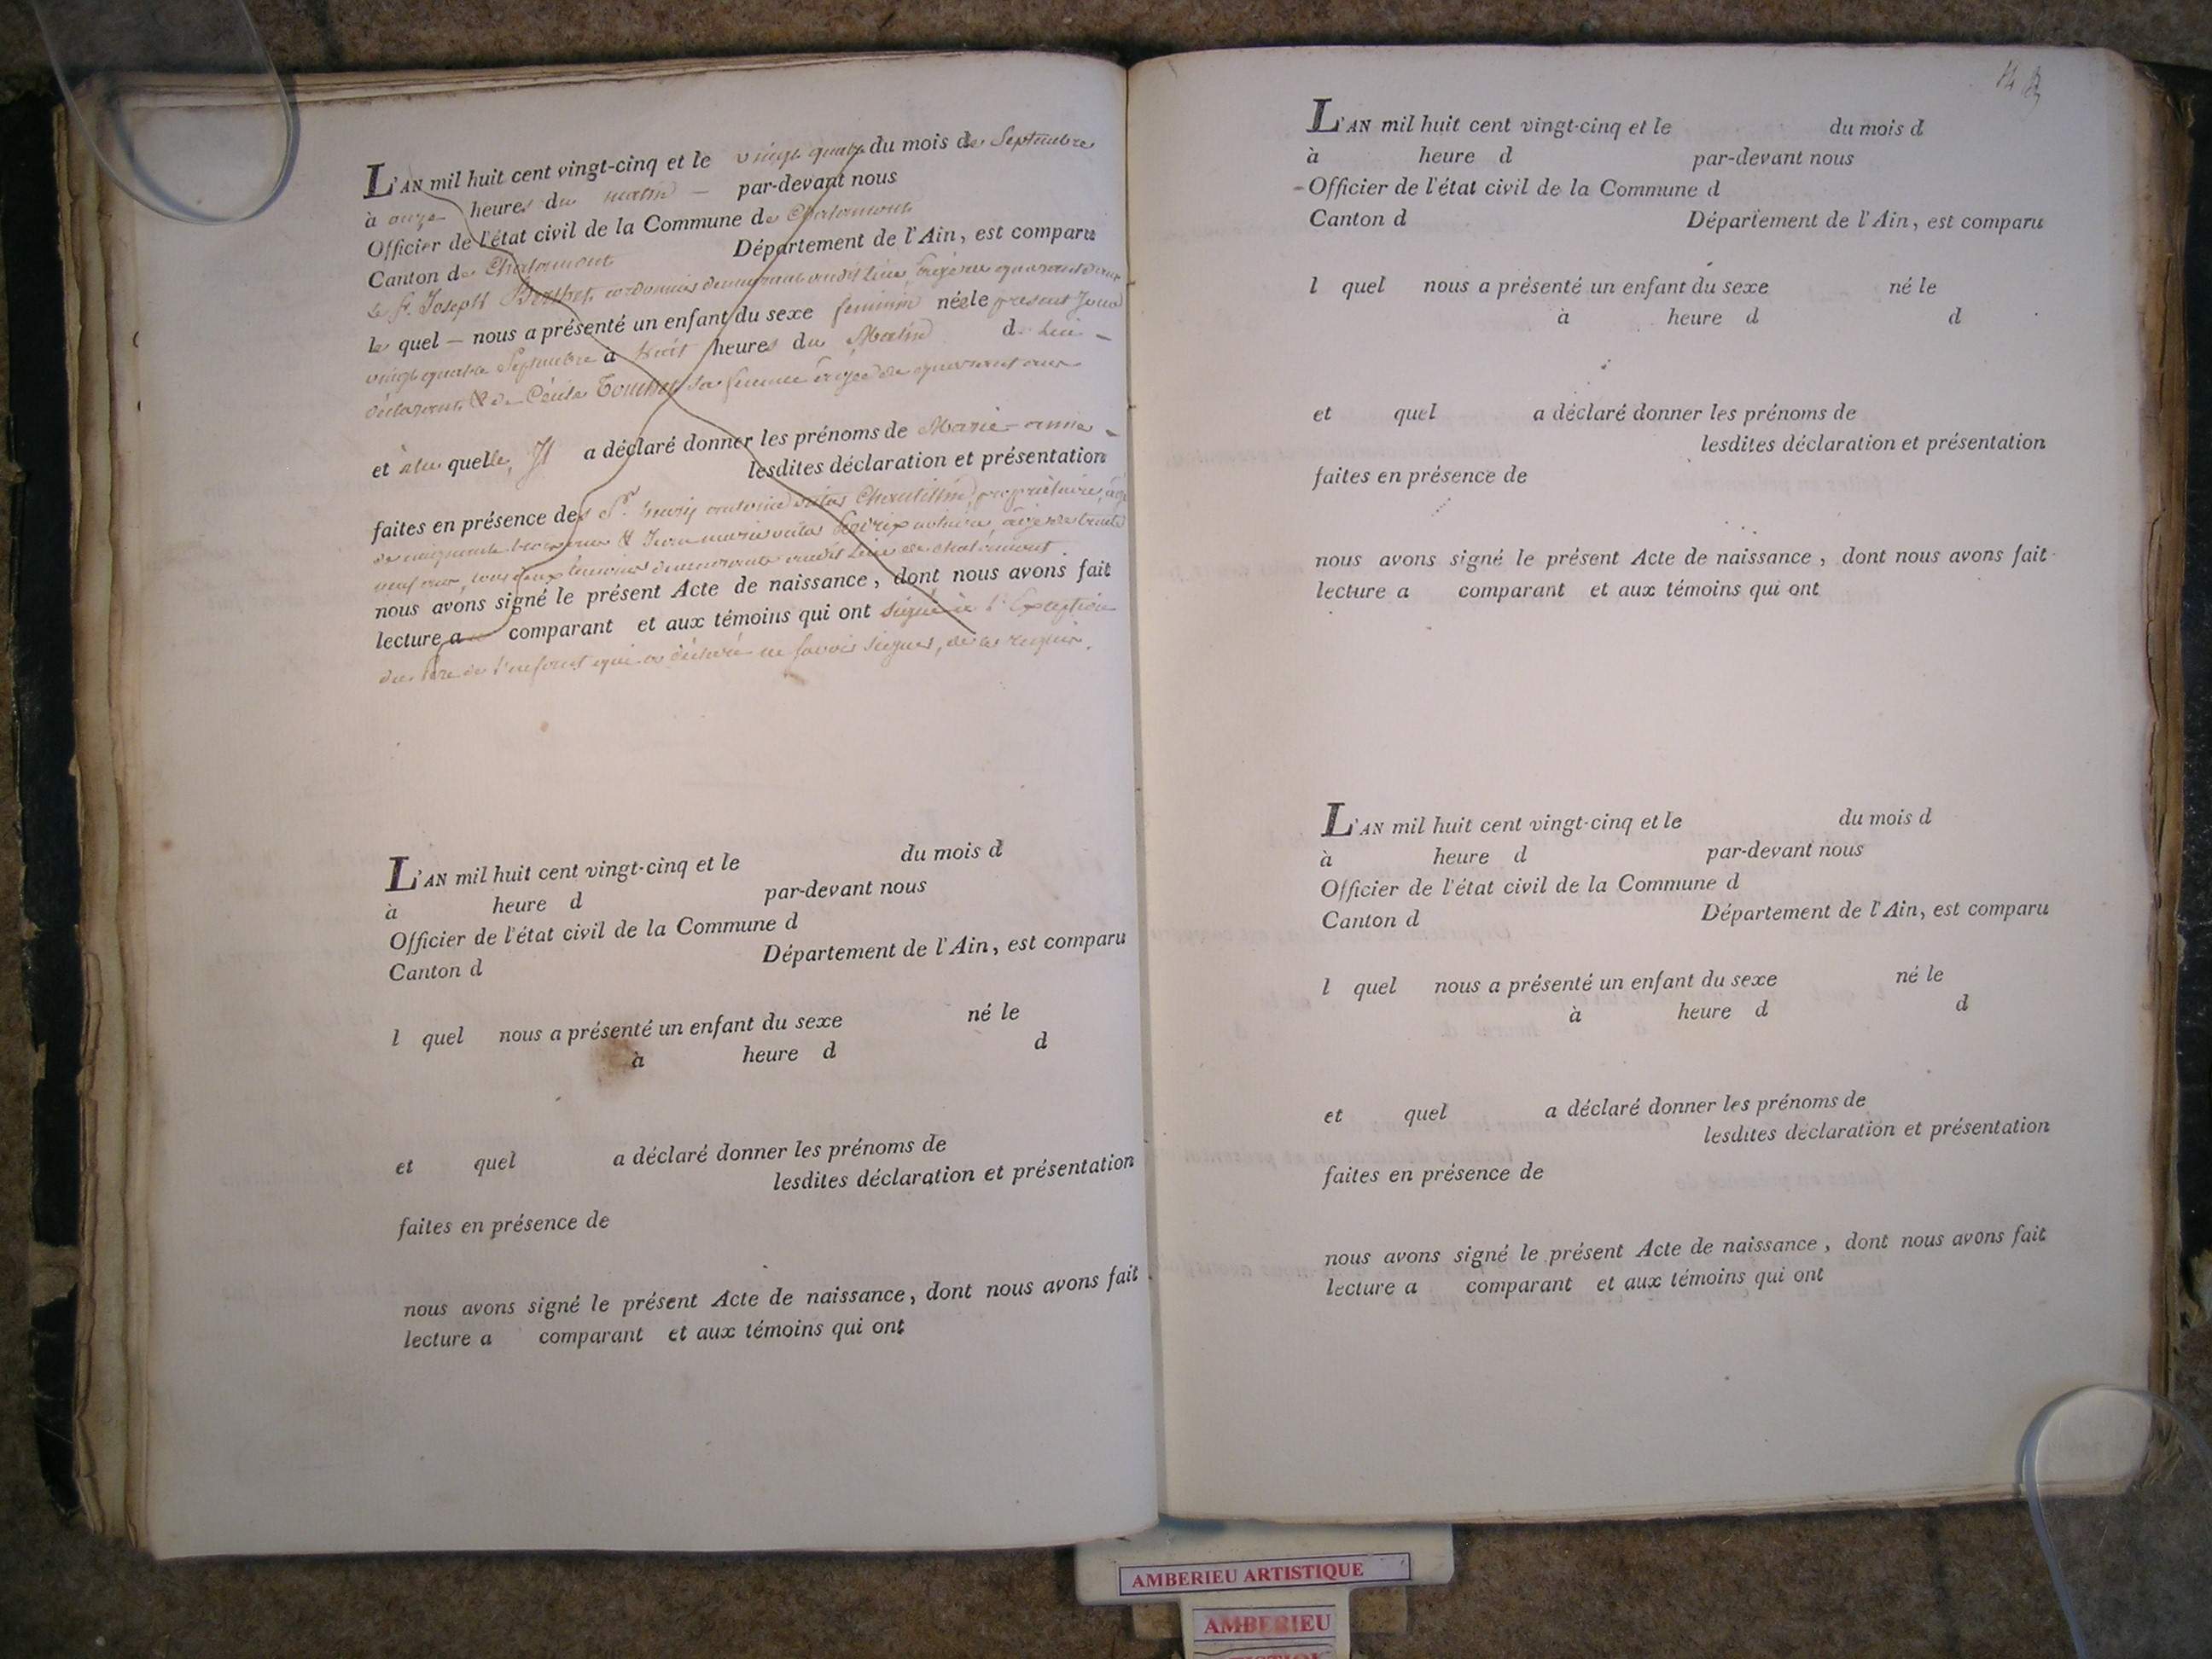 L'AN mil huit cent vingt-cinq et le vingt quatre du mois de Septembre
à onze heures du matin — par-devant nous
Officier de l'état civil de la Commune de Chalamont
Canton de Chalamont Département de l'Ain, est comparu
le Sr. Joseph Berthet, cordonnier demeurant audit lieu, âgé de quarante
le quel — nous a présenté un enfant du sexe feminin née le present Jour
vingt quatre Septembre à huit heures du Matin de lui —
déclarant & de Cécile sa femme âgée de quarante ans
et à la quelle, Il a déclaré donner les prénoms de Marie-anne -
lesdites déclaration et présentation
faites en présence des Sr. propriétaire, âgé
de cinquante & Jean marie notaire, âgé de trente
neuf ans, tous deux témoins demeurants audit Lieu de chalamont.
nous avons signé le présent Acte de naissance, dont nous avons fait
lecture a comparant et aux témoins qui ont signé à l'Exception
du Père de l'enfant qui a déclaré ne savoir signer, de ce requis.
L'AN mil huit cent vingt-cinq et le du mois d
à heure d par-devant nous
Officier de l'état civil de la Commune d
Canton d Département de l'Ain, est comparu
l quel nous a présenté un enfant du sexe né le
à heure d d
et quel a déclaré donner les prénoms de
lesdites déclaration et présentation
faites en présence de
nous avons signé le présent Acte de naissance, dont nous avons fait
lecture a comparant et aux témoins qui ont
L'AN mil huit cent vingt-cinq et le du mois d
à heure d par-devant nous
Officier de l'état civil de la Commune d
Canton d Département de l'Ain, est comparu
l quel nous a présenté un enfant du sexe né le
à heure d d
et quel a déclaré donner les prénoms de
lesdites déclaration et présentation
faites en présence de
nous avons signé le présent Acte de naissance, dont nous avons fait
lecture a comparant et aux témoins qui ont
L'AN mil huit cent vingt-cinq et le du mois d
à heure d par-devant nous
Officier de l'état civil de la Commune d
Canton d Département de l'Ain, est comparu
l quel nous a présenté un enfant du sexe né le
à heure d d
et quel a déclaré donner les prénoms de
lesdites déclaration et présentation
faites en présence de
nous avons signé le présent Acte de naissance, dont nous avons fait
lecture a comparant et aux témoins qui ont
AMBERIEU ARTISTIQUE
AMBERIEU